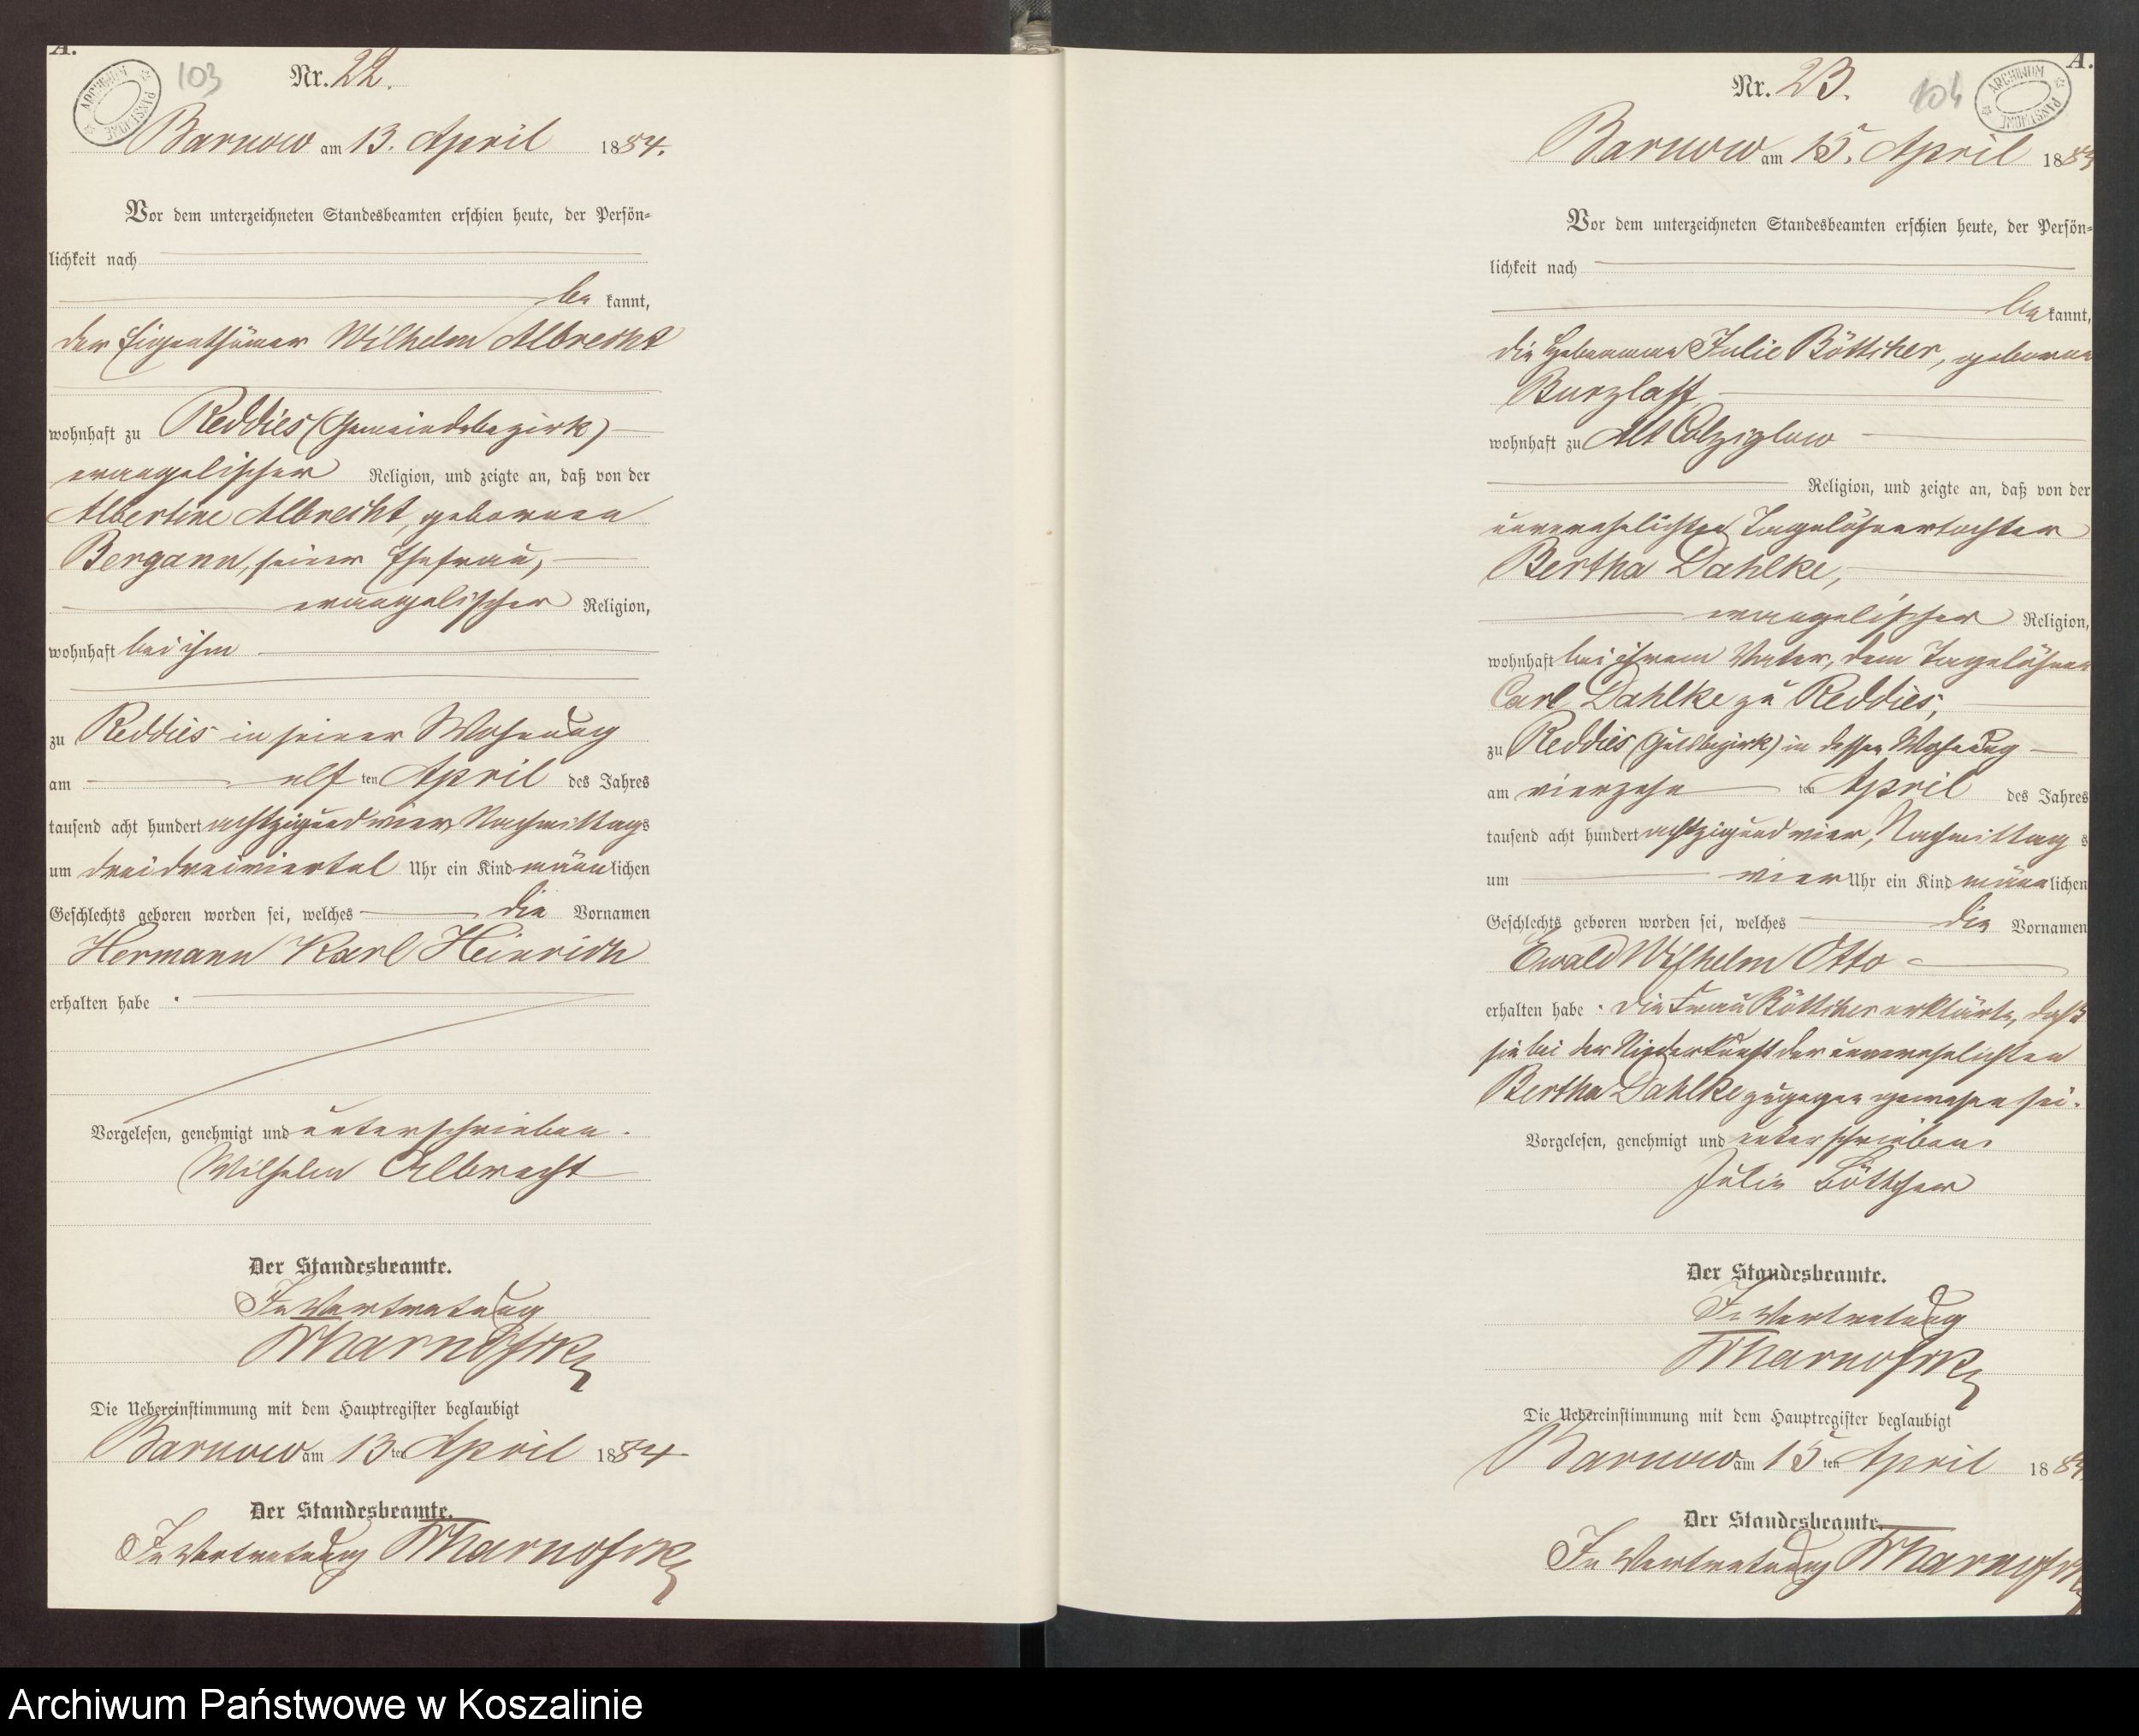 A.
ARCHIWUM PAŃSTWOWE
103
Nr. 22.
Barnow am 13. April 1884.
Vor dem unterzeichneten Standesbeamten erschien heute, der Persön-
lichkeit nach
be kannt,
der Eigenthümer Wilhelm Albrecht
wohnhaft zu Reddies (Gemeindebezirk)
evangelischer Religion, und zeigte an, daß von der
Albertine Albrecht, geborenen
Bergann, seiner Ehefrau,
evangelischer Religion,
wohnhaft bei ihm
zu Reddies in seiner Wohnung
am elf ten April des Jahres
tausend acht hundert achtzig und vier Nachmittags
um drei dreiviertel Uhr ein Kind männlichen
Geschlechts geboren worden sei, welches die Vornamen
Hermann Karl Heinrich
erhalten habe .
Vorgelesen, genehmigt und unterschrieben.
Wilhelm Albrecht
Der Standesbeamte.
In Vertretung
Die Uebereinstimmung mit dem Hauptregister beglaubigt
Barnow am 13 ten April 1884.
Der Standesbeamte.
In Vertretung
A.
ARCHIWUM PAŃSTWOWE
104
Nr. 23.
Barnow am 15. April 1884
Vor dem unterzeichneten Standesbeamten erschien heute, der Persön-
lichkeit nach
be kannt,
die Hebamme Julie Böttcher, geborene
Burzlaff,
wohnhaft zu Alt Colziglow
Religion, und zeigte an, daß von der
unverehelichten Tagelöhnertochter
Bertha Dahlke,
evangelischer Religion,
wohnhaft bei ihrem Vater, dem Tagelöhner
Carl Dahlke zu Reddies,
zu Reddies (Gutsbezirk) in dessen Wohnung
am vierzehn ten April des Jahres
tausend acht hundert achtzig und vier, Nachmittag s
um vier Uhr ein Kind männlichen
Geschlechts geboren worden sei, welches die Vornamen
Ewald Wilhelm Otto
erhalten habe . Die Frau Böttcher erklärte, daß
sie bei der Niederkunft der unverehelichten
Bertha Dahlke zugegen gewesen sei.
Vorgelesen, genehmigt und unterschrieben.
Julie Böttcher
Der Standesbeamte.
In Vertretung
Die Uebereinstimmung mit dem Hauptregister beglaubigt
Barnow am 15 ten April 1884
Der Standesbeamte.
In Vertretung
Archiwum Państwowe w Koszalinie